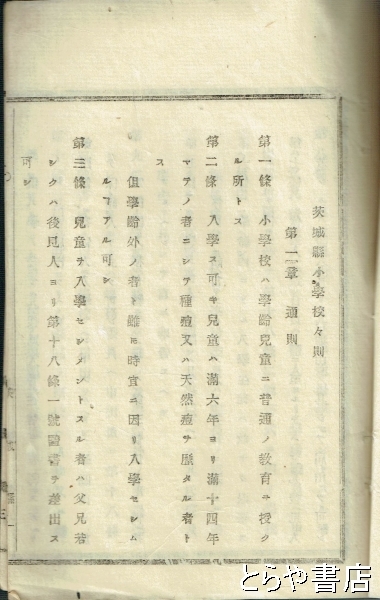 茨城縣小學校々則
第一章 通則
第一條 小學校ハ學齡兒童ニ普通ノ教育ヲ授ク
ル所トス
第二條 入學ス可キ兒童ハ滿六年ヨリ滿十四年
マテノ者ニシテ種痘又ハ天然痘ヲ歴タル者ト
ス
但學齡外ノ者ト雖モ時宜ニ因リ入學セシム
ルコアル可シ
第三條 兒童ヲ入學セシメントスル者ハ父兄若
シクハ後見人ヨリ第十八條一號證書ヲ差出ス
可シ
とらや書店